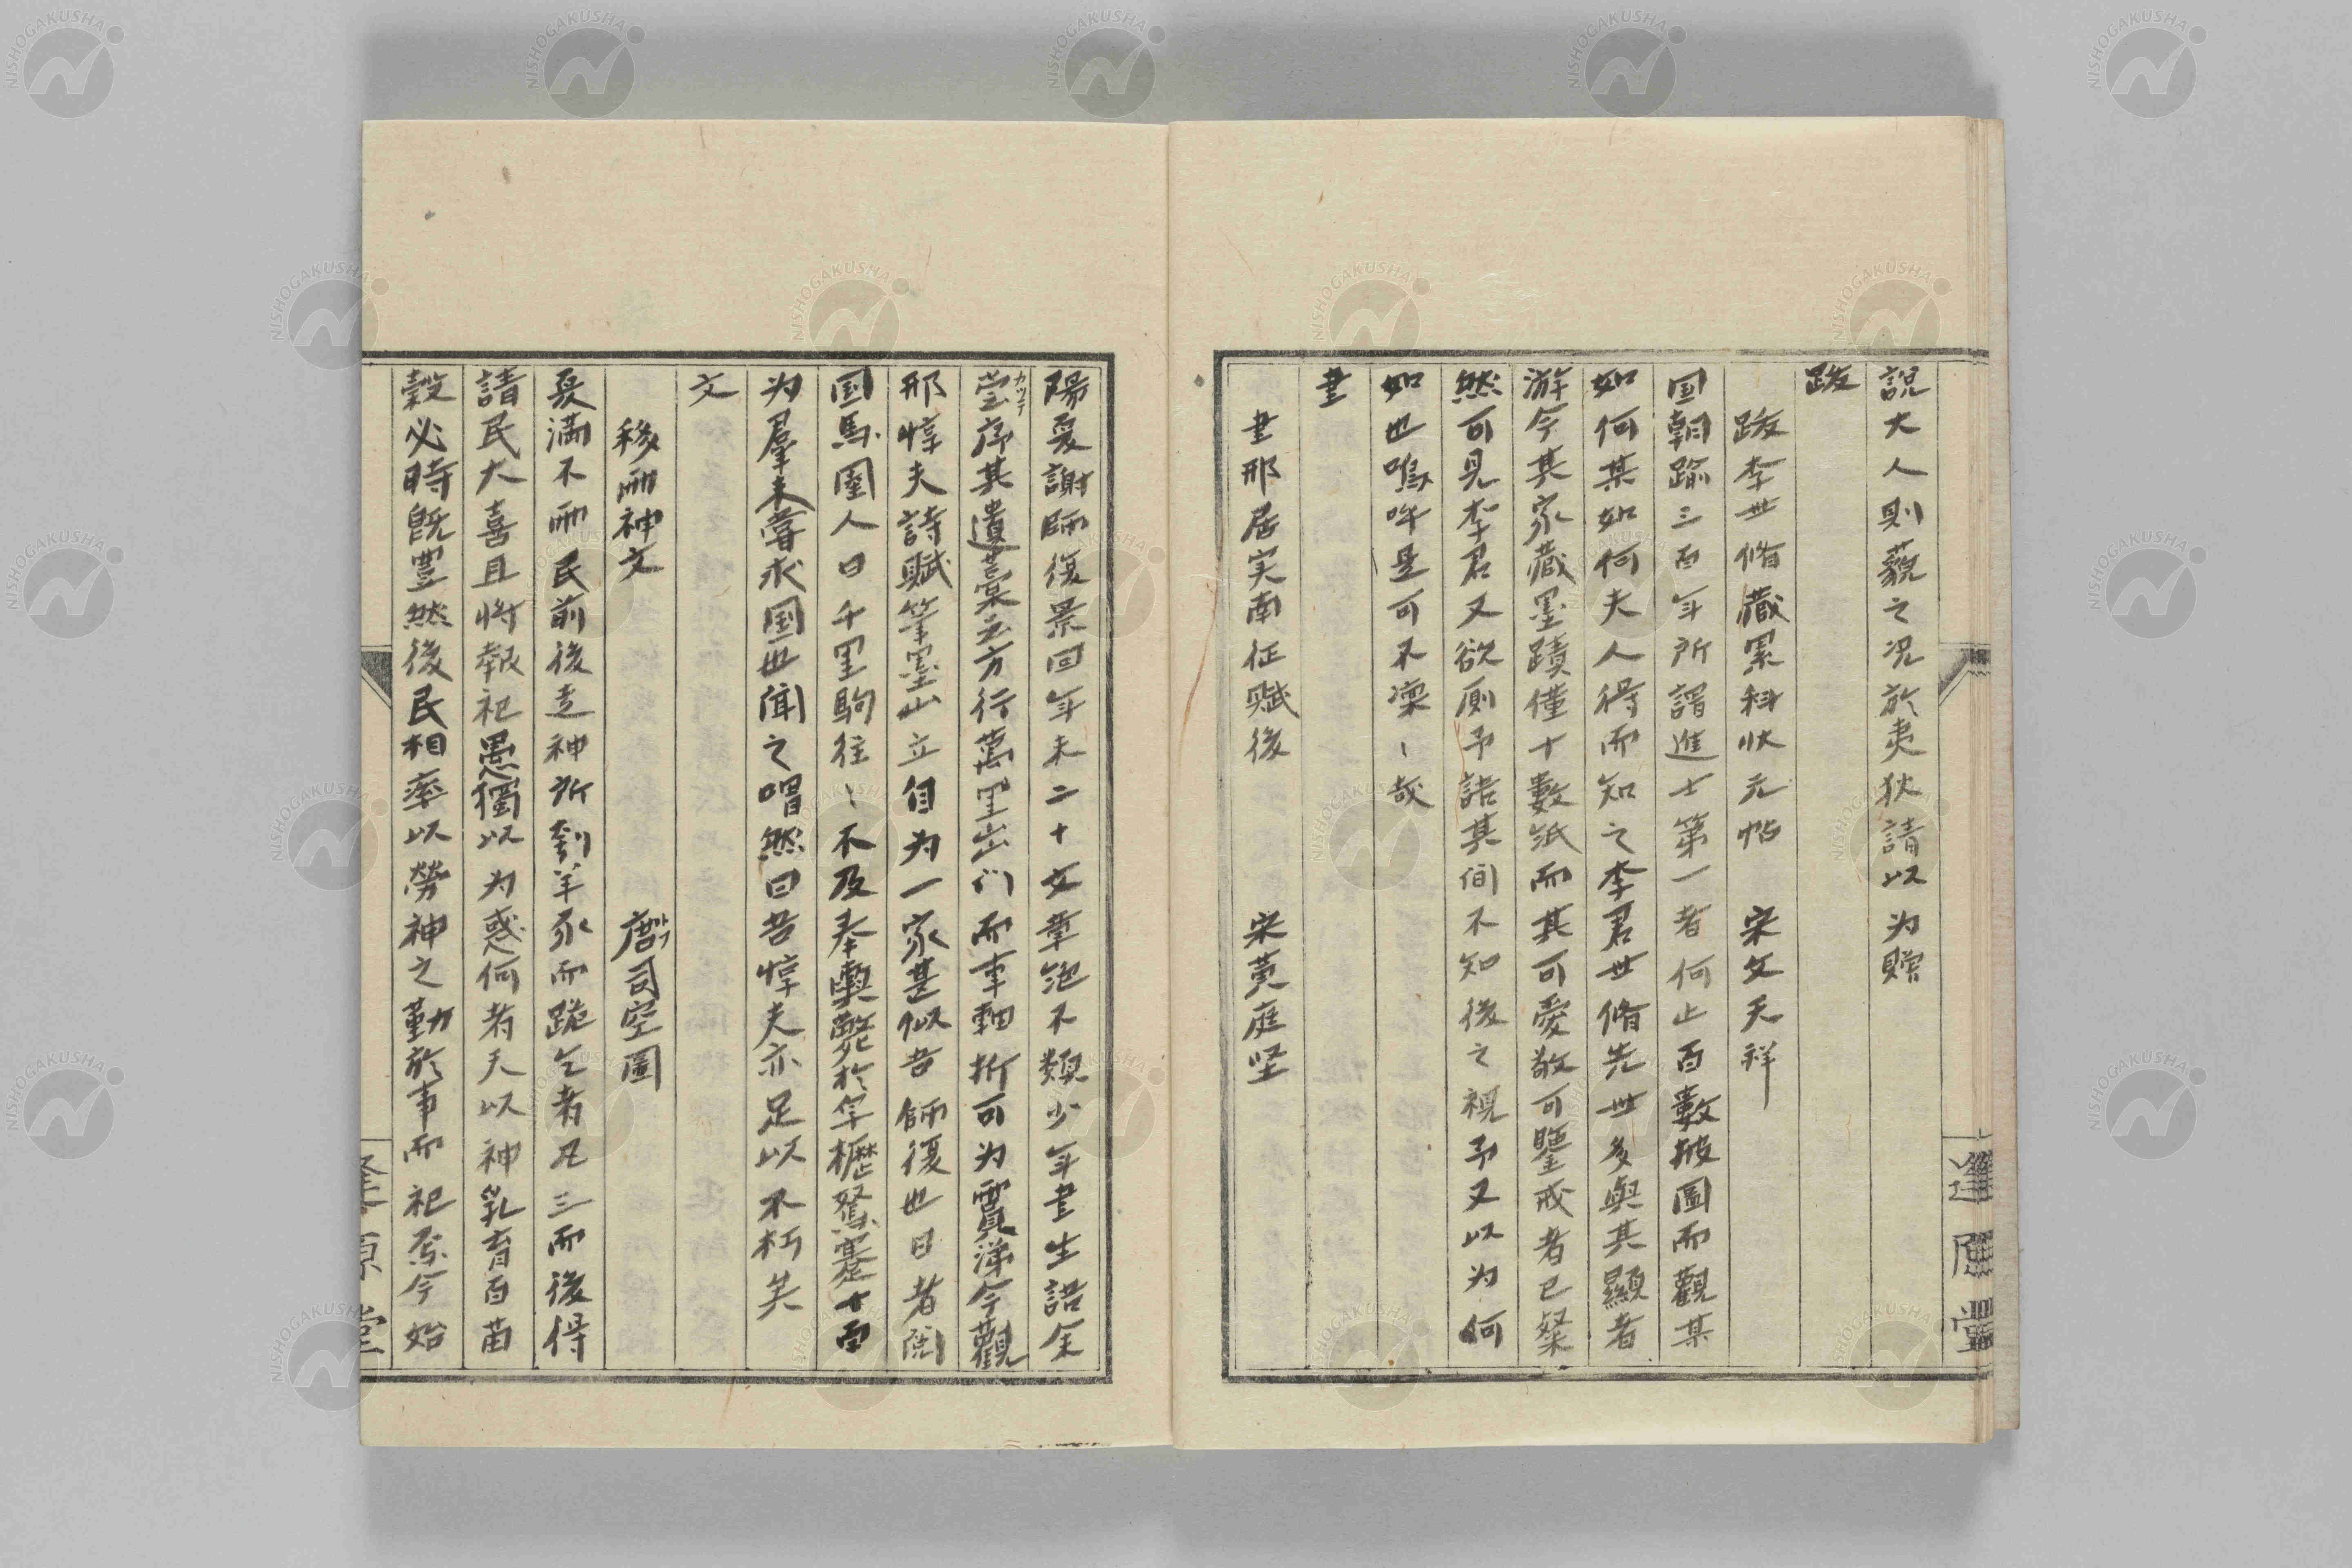 說大人則藐之况於夷狄請以为贈
跋
跋李世脩藏累科狀元帖 宋文天祥
国朝踰三百年所謂進士第一者何止百數披圖而觀某
如何某如何夫人得而知之李君世脩先世多與其顯者
游今其家藏墨蹟僅十數紙而其可愛敬可鑒戒者已粲
然可見李君又欲厠予語其间不知後之視予又以为何
如也嗚呼是可不凜〻哉
書
書邢居実南征賦後 宋黄庭坚
陽夏謝師復景回年未二十文章绝不類少年書生語余
嘗序其遺藁云方行萬里出门而車軸折可为霣涕今觀
邢惇夫詩賦筆墨山立自为一家甚似吾師復也日者閲
国馬圉人曰千里駒往〻不及奉輿斃於皁櫪駑蹇十百
为羣未嘗求国也聞之喟然曰吾惇夫亦足以不朽矣
文
移雨神文 唐司空圖
夏滿不雨民前後走神所刲羊豕而跪乞者凡三而後得
請民大喜且将報祀愚獨以为惑何者天以神乳育百苗
穀必時既豐然後民相率以勞神之勤於事而祀焉今始
カツテ
逢原堂
逢原堂